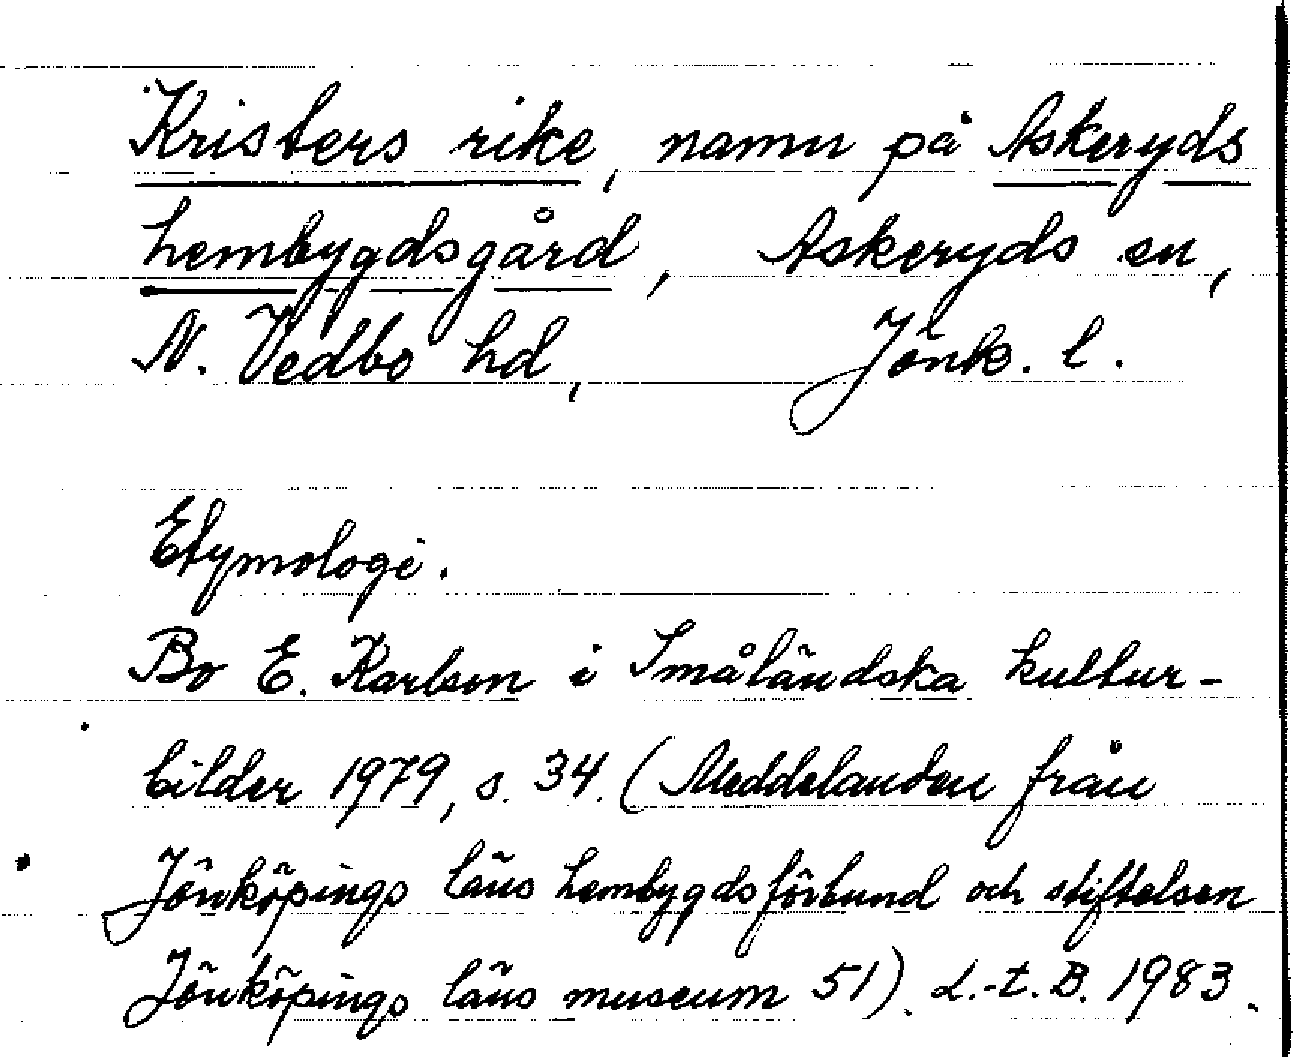 Kristers rike, namn på Askeryds
hembygdsgård, Askeryds sn,
N. Vedbo hd, Jönk. l.
Etymologi.
Bo E. Karlson i Småländska kultur-
bilder 1979, s. 34. (Meddelanden från
Jönköpings läns hembygdsförbund och stiftelsen
Jönköpings läns museum 51). L.-t. B. 1983.